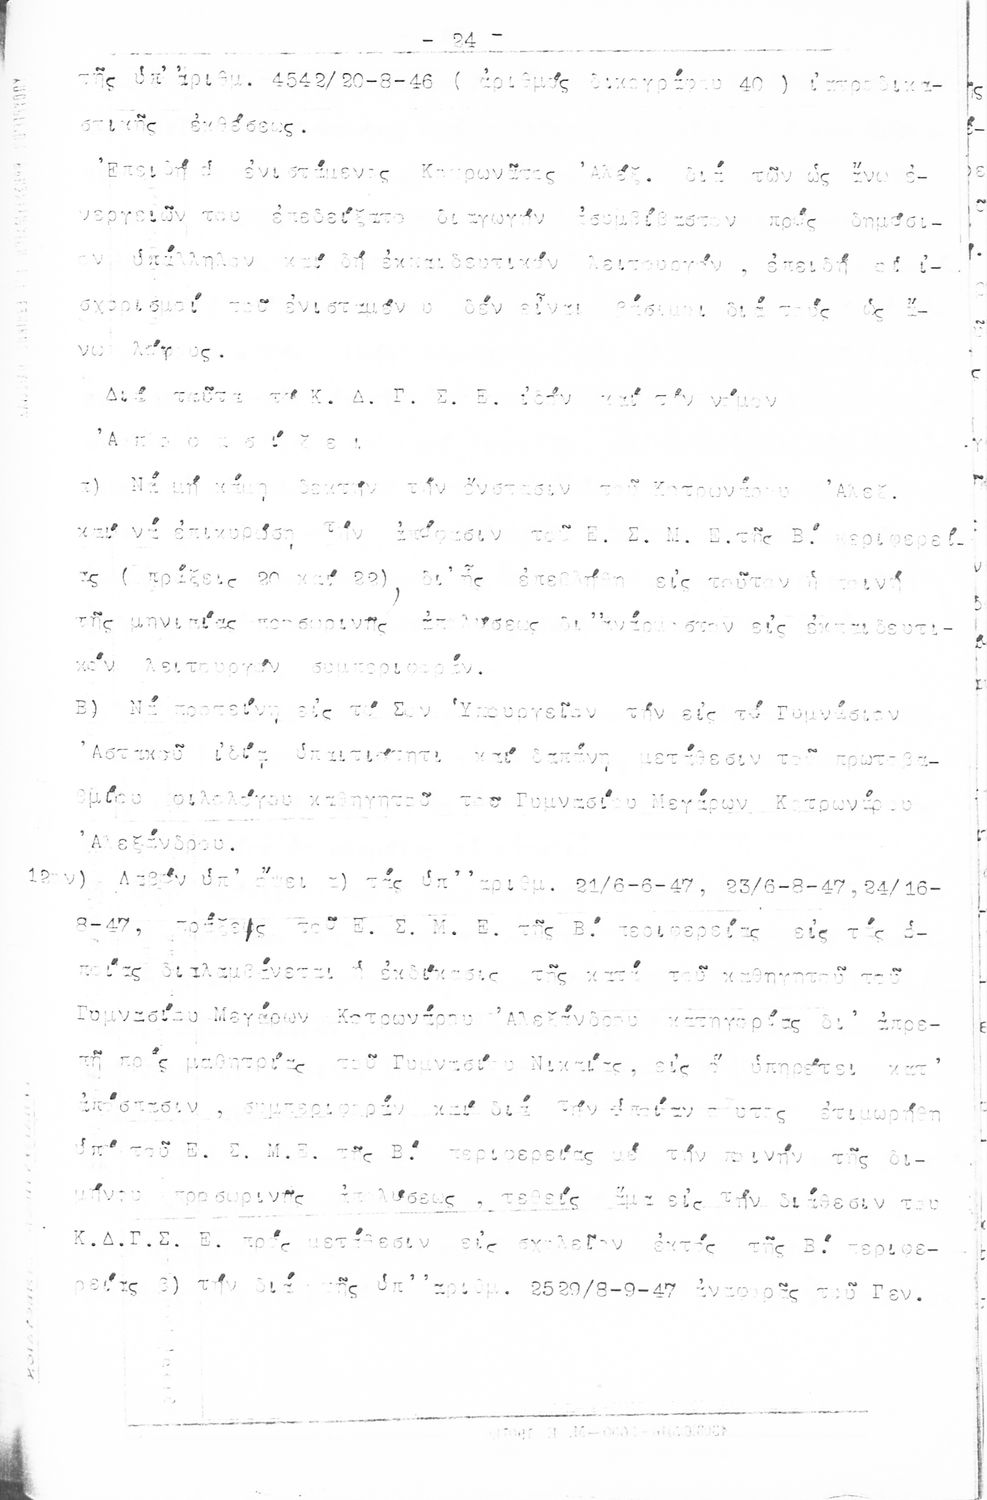 - 24 -
τῆς ὑπ' ἀριθμ. 4542/20-8-46 ( ἀριθμός δικογράφου 40 ) ἰατροδικα-
στικῆς ἐκθέσεως.
'Επειδή ὁ ἐνιστάμενος Κοτρωνᾶτος 'Αλέξ. διά τῶν ὡς ἄνω ἐ-
νεργειῶν του ἐπεδείξατο διαγωγήν ἀσυμβίβαστον πρός δημόσι-
ον ὑπάλληλον καί δή ἐκπαιδευτικόν λειτουργόν , ἐπειδή οἱ ἰ-
σχυρισμοί τοῦ ἐνισταμένου δέν εἶναι βάσιμοι διά τούς ὡς ἄ-
νω λόγους.
Διά ταῦτα τό Κ. Δ. Γ. Σ. Ε. ἰδόν καί τόν νόμον
'Α π ο φ α σ ί ζ ε ι
α) Νά μή κάμῃ δεκτήν τήν ἔνστασιν τοῦ Κοτρωνάρου 'Αλεξ.
καί νά ἐπικυρώσῃ τήν ἀπόφασιν τοῦ Ε. Σ. Μ. Ε.τῆς Β.' περιφερεί-
ας ( πράξεις 20 καί 22), δι'ἧς ἐπεβλήθη εἰς τοῦτον ἡ ποινή
τῆς μηνιαίας προσωρινῆς ἀπολύσεως δι''ἀνάρμοστον εἰς ἐκπαιδευτι-
κόν λειτουργόν συμπεριφοράν.
Β) Νά προτείνῃ εἰς τό Σον Ὑπουργεῖον τήν εἰς τό Γυμνάσιον
'Αστακοῦ ἰδίᾳ ὑπαιτιότητι καί δαπάνῃ μετάθεσιν τοῦ πρωτοβα-
θμίου φιλολόγου καθηγητοῦ τοῦ Γυμνασίου Μεγάρων Κοτρωνάρου
'Αλεξάνδρου.
12ον) Λαβόν ὑπ' ὄψει α) τάς ὑπ''αριθμ. 21/6-6-47, 23/6-8-47,24/16-
8-47, πράξεις τοῦ Ε. Σ. Μ. Ε. τῆς Β.' περιφερείας εἰς τάς ὁ-
ποίας διαλαμβάνεται ἡ ἐκδίκασις τῆς κατά τοῦ καθηγητοῦ τοῦ
Γυμνασίου Μεγάρων Κοτρωνάρου 'Αλεξάνδρου κατηγορίας δι' ἀπρε-
πῆ πρός μαθητρίας τοῦ Γυμνασίου Νικαίας, εἰς ὅ ὑπηρέτει κατ'
ἀπόσπασιν , συμπεριφοράν καί διά τήν ὁποίαν οὗτος ἐτιμωρήθη
ὑπό τοῦ Ε. Σ. Μ.Ε. τῆς Β.' περιφερείας μέ τήν ποινήν τῆς δι-
μήνου προσωρινῆς ἀπολύσεως , τεθείς ἅμα εἰς τήν διάθεσιν του
Κ.Δ.Γ.Σ. Ε. πρός μετάθεσιν εἰς σχολεῖον ἐκτός τῆς Β.' περιφε-
ρείας β) τήν διά τῆς ὑπ''αριθμ. 2529/8-9-47 ἀναφορᾶς τοῦ Γεν.